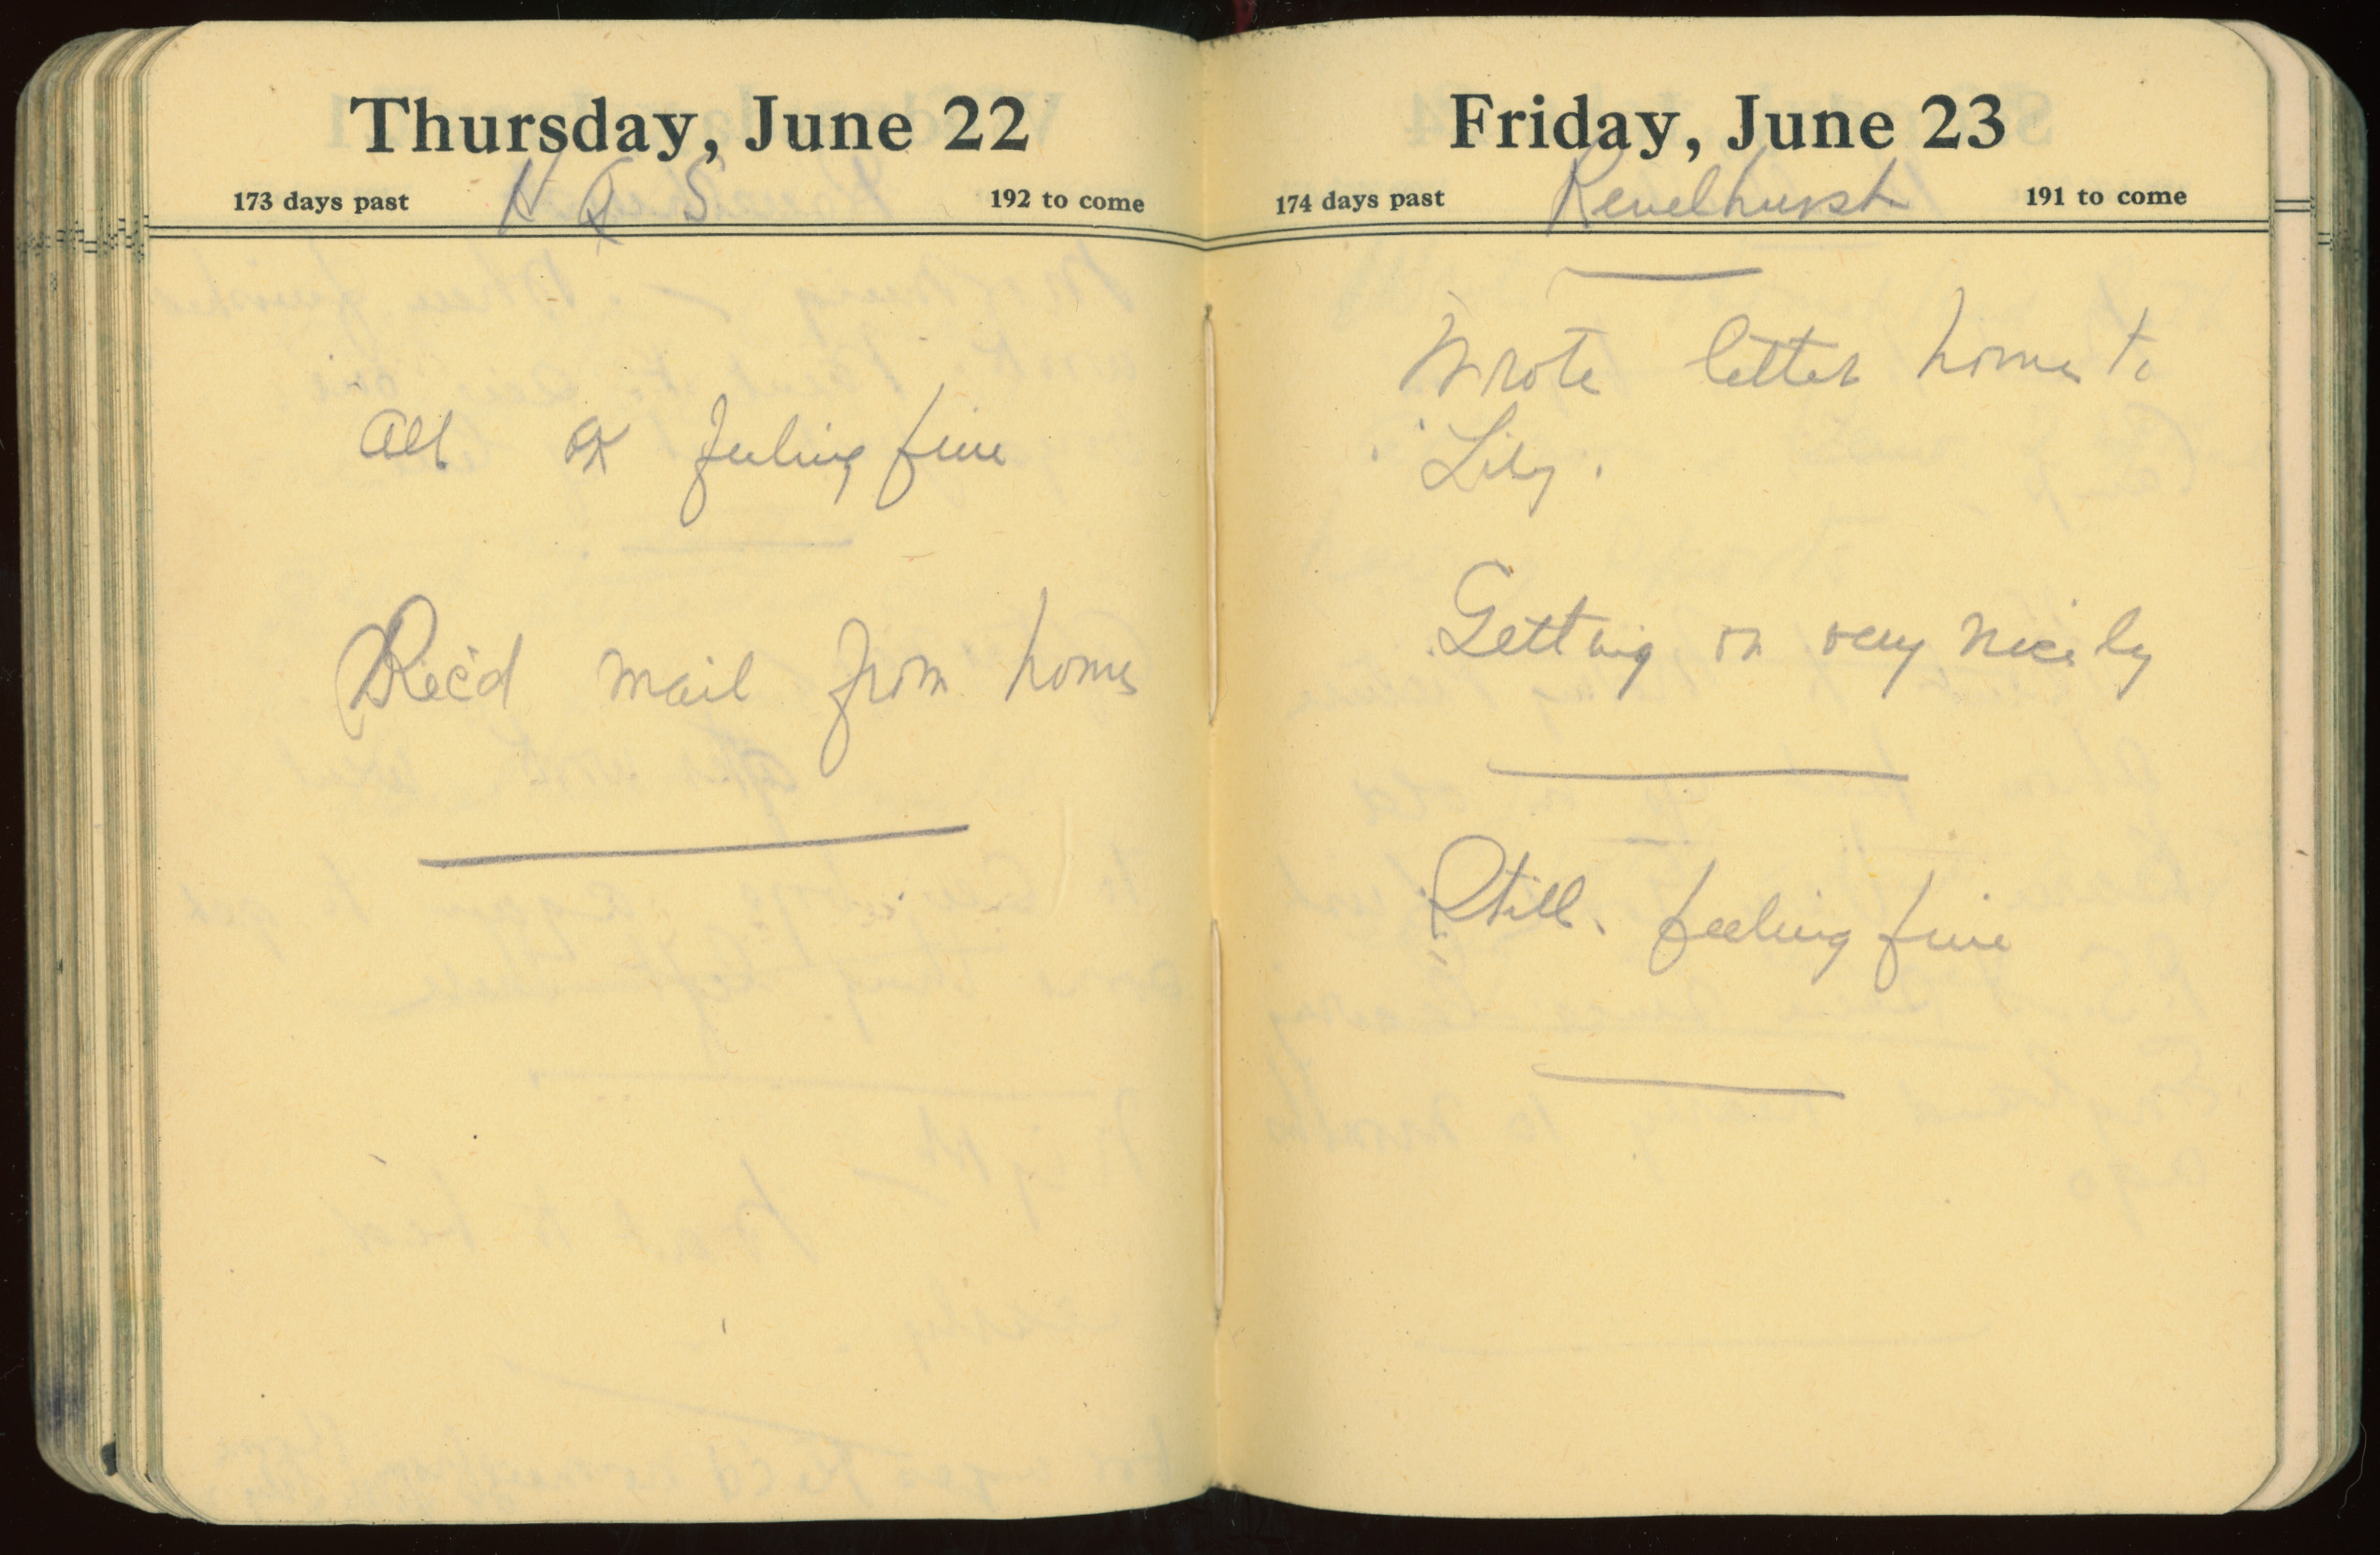 Thursday, June 22
173 days past
H Q S
192 to come
All OK feeling fine
Rec'd mail from home
Friday, June 23
174 days past
191 to come
Wrote letter home to
Lily.
Getting on very nicely
Still feeling fine